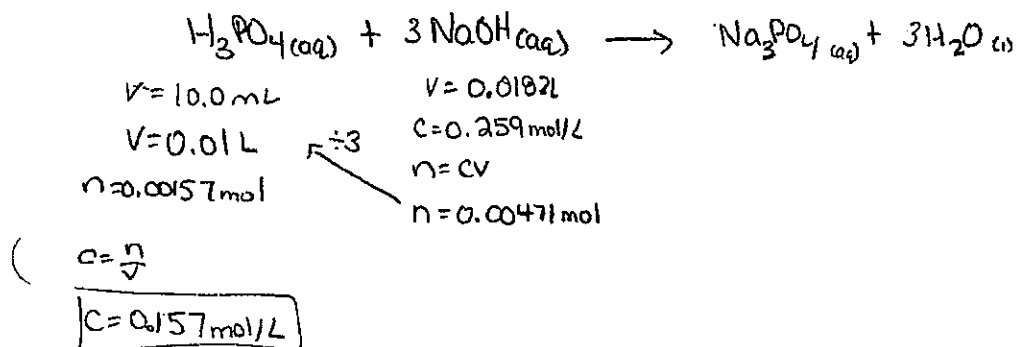 H₃PO₄(aq) + 3NaOH(aq) → Na₃PO₄(aq) + 3H₂O(l)
V=10.0mL
V=0.01L
n=0.00157mol
V=0.0182L
C=0.259mol/L
n=CV
n=0.00471mol
÷3
C=n/V
C=0.157mol/L